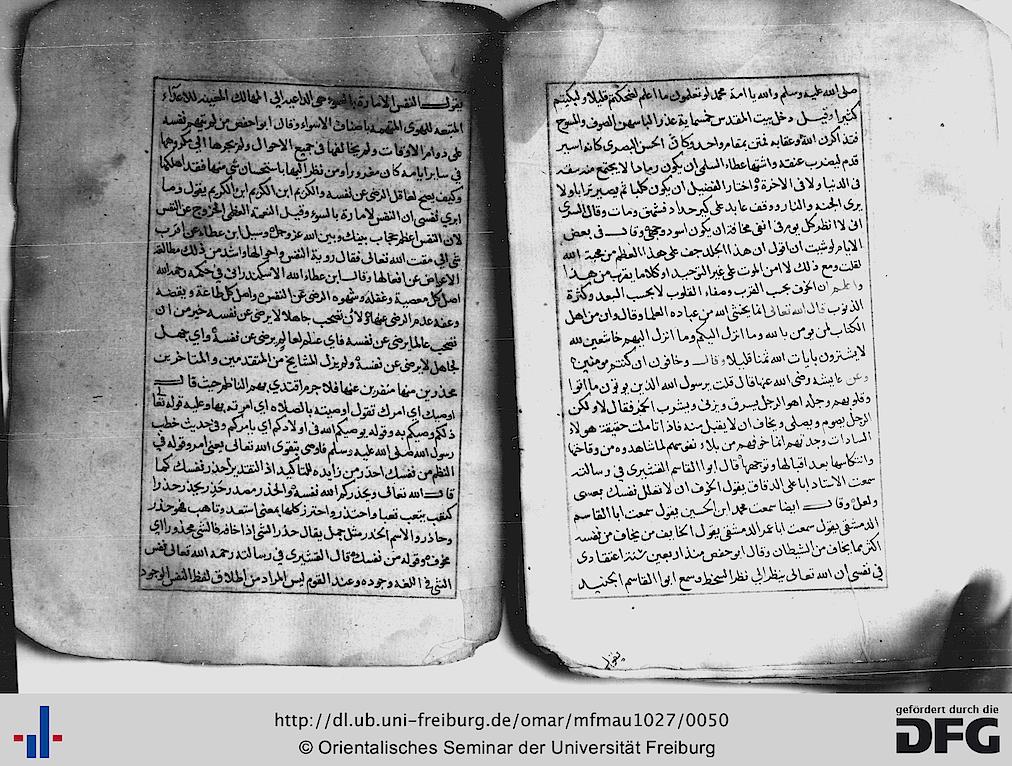 صلى الله عليه وسلم والله يا امة محمد لو تعلمون ما اعلم لضحكتم قليلا ولبكيتم
كثيرا وقيل دخل بيت المقدس خمسماية عذرا لباسهن الصوف والمسوح
فتذاكرن الله وعقابه فمتن بمقام واحد وكان الحسن البصري كانه اسير
قدم ليضرب عنقه واشتها عطاء السلمي ان يكون رمادا لا يجتمع منه سفه
في الدنيا ولا في الاخرة واختار الفضيل ان يكون كلبا ثم يصير ترابا ولا
يرى الجنة والنار ووقف عابد على كير حداد فشهق ومات وقال السري
اني لا انظر كل يوم في انفي مخافة ان يكون اسود وجهي وقال في بعض
الايام لو شيت ان اقول ان هذا الجلد جف على هذا العظم من محبة الله
لقلت ومع ذلك لا امن الموت على غير التوحيد او كلاما يقرب من هذا
واعلم ان الخوف بحسب القرب وصفاء القلوب لا بحسب البعد وكثرة
الذنوب قال الله تعالى انما يخشى الله من عباده العلما وقال وان من اهل
الكتاب لمن يومن بالله وما انزل اليكم وما انزل اليهم خاشعين لله
لا يشترون بايات الله ثمنا قليلا وقال وخافون ان كنتم مومنين
وعن عايشه رضى الله عنها قال قلت يرسول الله الذين يوتون ما اتوا
وقلوبهم وجلة اهو الرجل يسرق ويزني ويشرب الخمر فقال لا ولكن
الرجل يصوم ويصلي ويخاف ان لا يقبل منه فاذا تاملت حقيقة هولاء
السادات وجدتهم انما خوفهم من بلاد نفوسهم لما شاهدوه من وقاحتها
وانتكاسها بعد اقبالها وتوجهها قال ابوا القاسم القشيري في رسالته
سمعت الاستاد ابا على الدقاق يقول الخوف ان لا تعلل نفسك بعسى
ولعل وقال ايضا سمعت محمد ابن الحسين يقول سمعت ابا القاسم
الدمشقي يقول سمعت ابا عمر الدمشقي يقول الخايف من يخاف من نفسه
اكثر مما يخاف من الشيطان وقال ابو حفص منذ اربعين سنة اعتقادي
في نفسي ان الله تعالى ينظر الي نظر السخط وسمع ابوا القاسم الجنيد
يقول
يقول النفس الامارة بالسوء هي الداعية الى المهالك المعينه للاعداء
المتبعه للهوى المتهمه باصناف الاسواء وقال ابوا حفص من لم يتهم نفسه
على دوام الاوقات ولم يخالفها في جميع الاحوال ولم يجرها الى مكروهها
في ساير ايامه كان مغرورا ومن نظر اليها باستحسان شي منها فقد اهلكها
وكيف يصح لعاقل الرضى عن نفسه والكريم ابن الكريم ابن الكريم يقول وما
ابري نفسي ان النفس لامارة بالسوء وقيل النعمة العظمى الخروج عن النفس
لان النفس اعظم حجاب بينك وبين الله عز وجل وسيل ابن عطاء عن اقرب
شي الى مقت الله تعالى فقال روية النفس واحوالها واشد من ذلك مطالعة
الاعواض عن افعالها وقال ابن عطاء الله الاسكندراني في حكمه رحمه الله
اصل كل معصية وغفلة وشهوه الرضى عن النفس واصل كل طاعة ويقضه
وعفه عدم الرضى عنها ولان تصحب جاهلا لا يرضى عن نفسه خير من ان
تصحب عالما يرضى عن نفسه فاي علم لعالم يرضى عن نفسه واي جهل
لجاهل لا يرضى عن نفسه ولم يزل المشايخ من المتقدمين والمتاخرين
محذرين منها منفرين عنها فلا جرم اقتدى بهم الناظم حيث قال
اوصيك اي امرك تقول اوصيته بالصلاه اي امرته بها وعليه قوله تعالى
ذلكم وصيكم به وقوله يوصيكم الله في اولادكم اي يامركم وفي حديث خطب
رسول الله صلى الله عليه وسلم فاوصى بتقوى الله تعالى يعنى امر وقوله في
النظم من نفسك احذر من زايده للتاكيد اذ التقدير احذر نفسك كما
قال الله تعالى ويحذركم الله نفسه والحذر مصدر حذر يحذر حذرا
كتعب يتعب تعبا واحتذر واحترز كلها بمعنى استعد وتاهب فهو حذر
وحاذر والاسم الحذر مثل حمل يقال حذر الشي اذا خافه فالشي محذور اي
مخوف وقوله من نفسك قال القشيري في رسالته رحمه الله تعالى نفس
الشي في اللغه وجوده وعند القوم ليس المراد من اطلاق لفظ النفس الوجود
http://dl.ub.uni-freiburg.de/omar/mfmau1027/0050
© Orientalisches Seminar der Universität Freiburg
gefördert durch die
DFG